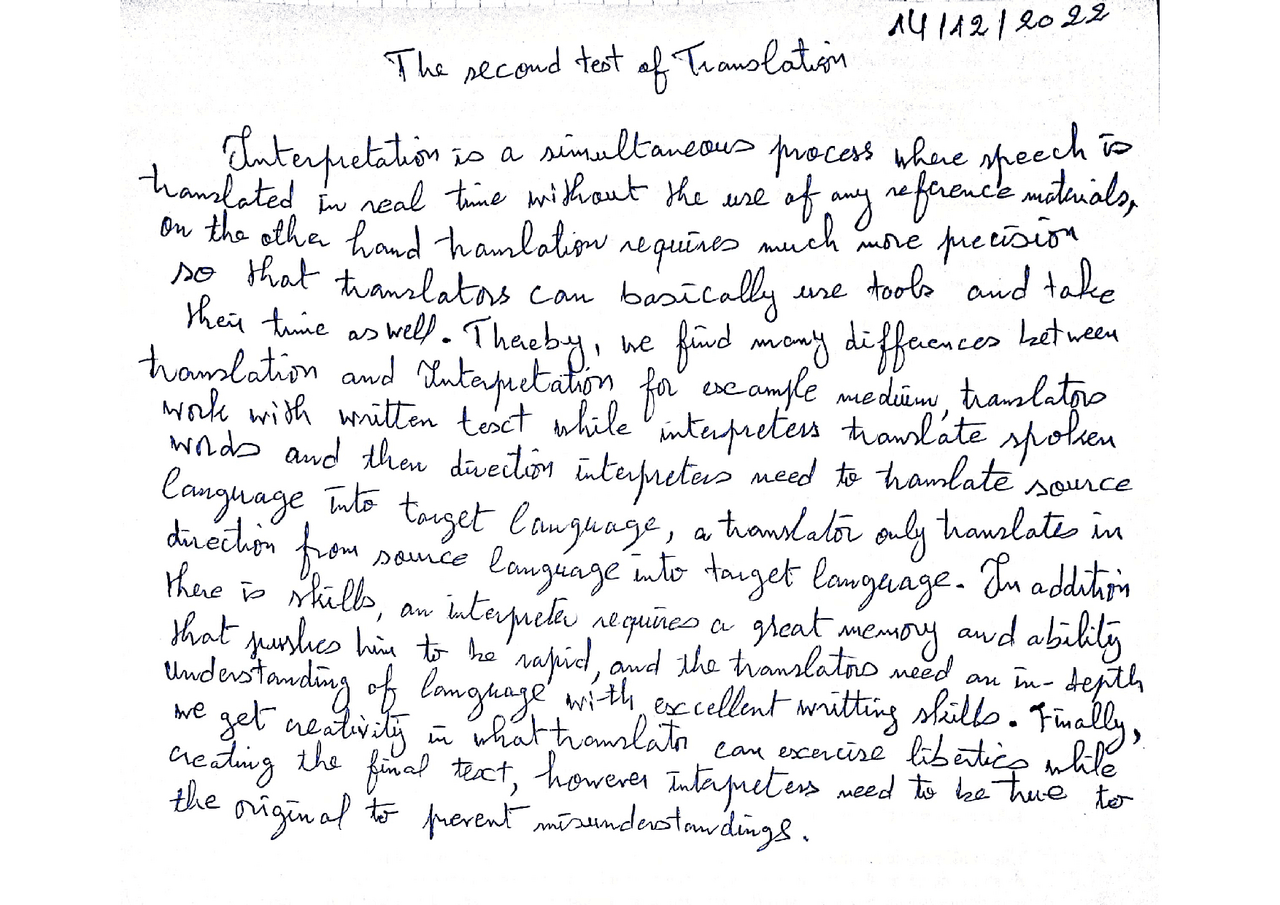 14/12/2022
The second test of Translation
Interpretation is a simultaneous process where speech is
translated in real time without the use of any reference materials,
on the other hand translation requires much more precision
so that translators can basically use tools and take
their time as well. Thereby, we find many differences between
translation and Interpretation for example medium, translators
work with written text while interpreters translate spoken
words and then direction interpreters need to translate source
language into target language, a translator only translates in
direction from source language into target language. In addition
there is skills, an interpreter requires a great memory and ability
that pushes him to be rapid, and the translators need an in-depth
understanding of language with excellent writting skills. Finally,
we get creativity in what translator can exercise liberties while
creating the final text, however interpreters need to be true to
the original to prevent misunderstandings.